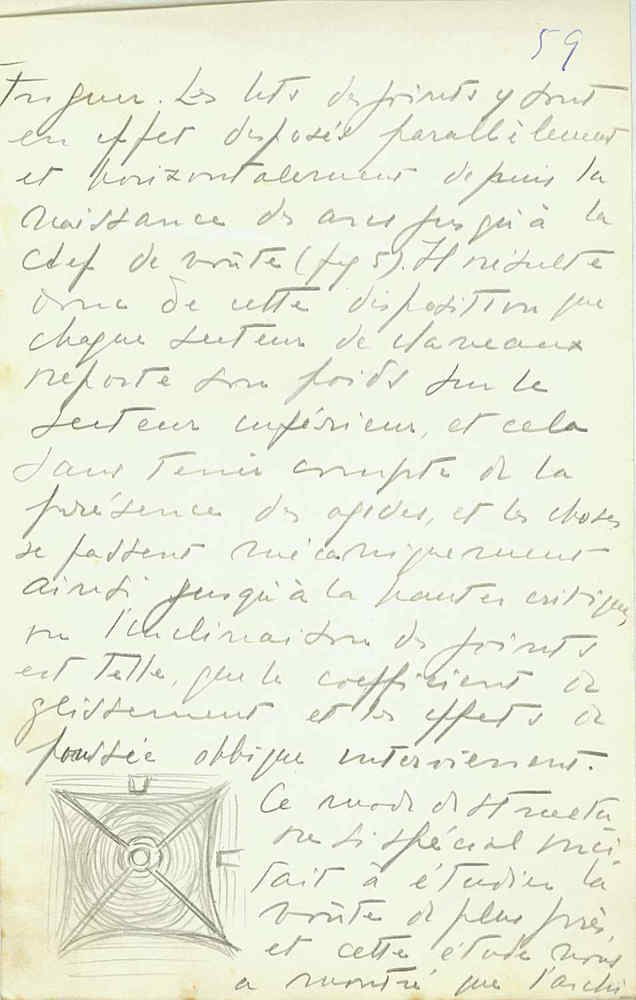 59
Les lits des joints y sont
en effet disposés parallèlement
et horizontalement depuis la
naissance des arcs jusqu'à la
clef de voûte (fig 5). Il résulte
donc de cette disposition que
chaque secteur de claveaux
reporte son poids sur le
secteur inférieur, et cela
sans tenir compte de la
présence des ogives, et les choses
se passent mécaniquement
ainsi jusqu'à la hauteur critique
ou l'inclinaison des joints
est telle, que le coefficient de
glissement et les effets de
poussée oblique interviennent.
Ce mode de structu
re si spécial inci
tait à étudier la
voûte de plus près,
et cette étude nous
a montré que l'archi